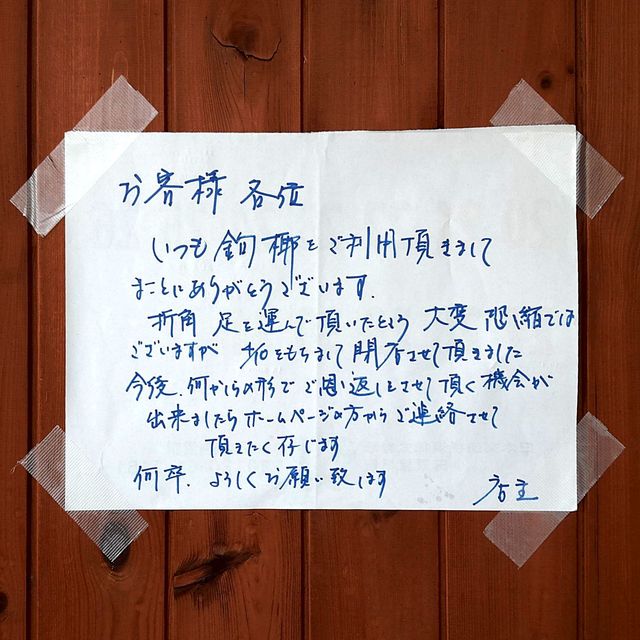 お客様 各位
いつも 椰をご利用頂きまして
まことにありがとうございます.
折角 足を運んで頂いたところ 大変 恐縮では
ございますが をもちまして閉店させて頂きました
今後、何かしらの形で ご恩返しをさせて頂く機会が
出来ましたら ホームページの方からご連絡させて
頂きたく存じます
何卒、よろしくお願い致します
店主